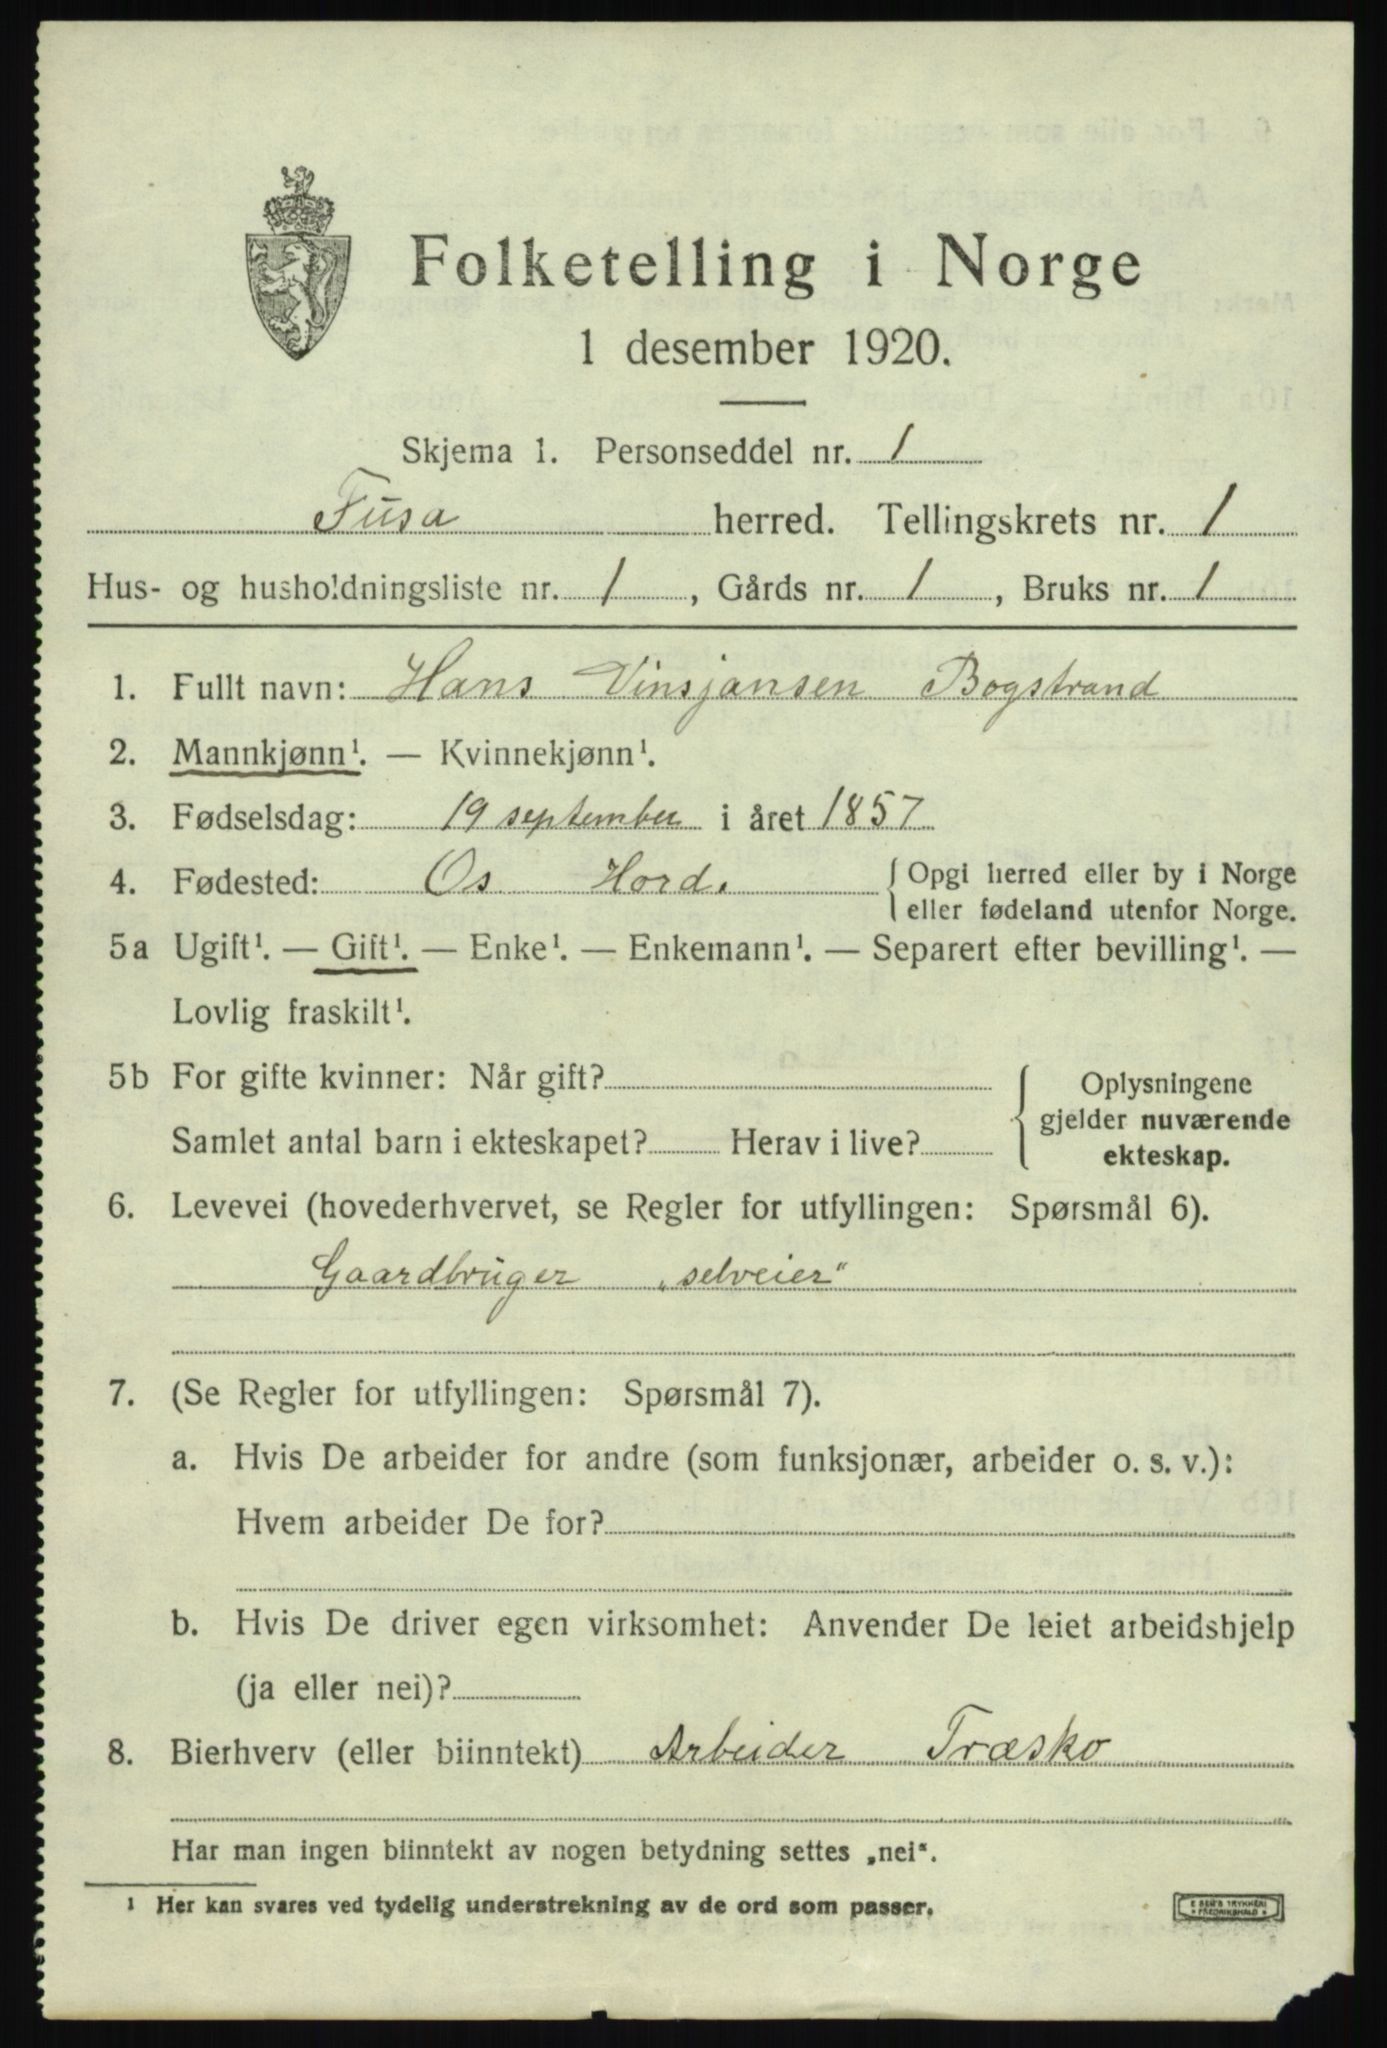 Folketelling i Norge
1 desember 1920.
Skjema 1. Personseddel nr. 1
Fusa herred. Tellingskrets nr. 1
Hus- og husholdningsliste nr. 1, Gårds nr. 1, Bruks nr. 1
1. Fullt navn: Hans Vinsjansen Bogstrand
2. Mannkjønn¹. — Kvinnekjønn¹.
3. Fødselsdag: 19 september i året 1857
4. Fødested: Os Hord. { Opgi herred eller by i Norge
eller fødeland utenfor Norge.
5a Ugift¹. — Gift¹. — Enke¹. — Enkemann¹. — Separert efter bevilling¹. —
Lovlig fraskilt¹.
5b For gifte kvinner: Når gift? { Oplysningene
gjelder nuværende
Samlet antal barn i ekteskapet? Herav i live?
ekteskap.
6. Levevei (hovederhvervet, se Regler for utfyllingen: Spørsmål 6).
Gaardbruger „selveier"
7. (Se Regler for utfyllingen: Spørsmål 7).
a. Hvis De arbeider for andre (som funksjonær, arbeider o. s. v.):
Hvem arbeider De for?
b. Hvis De driver egen virksomhet: Anvender De leiet arbeidshjelp
(ja eller nei)?
8. Bierhverv (eller biinntekt) Arbeider Træsko
Har man ingen biinntekt av nogen betydning settes „nei".
¹ Her kan svares ved tydelig understrekning av de ord som passer.
E SEM'S TRYKKERI
* FREDRIKSHALD *